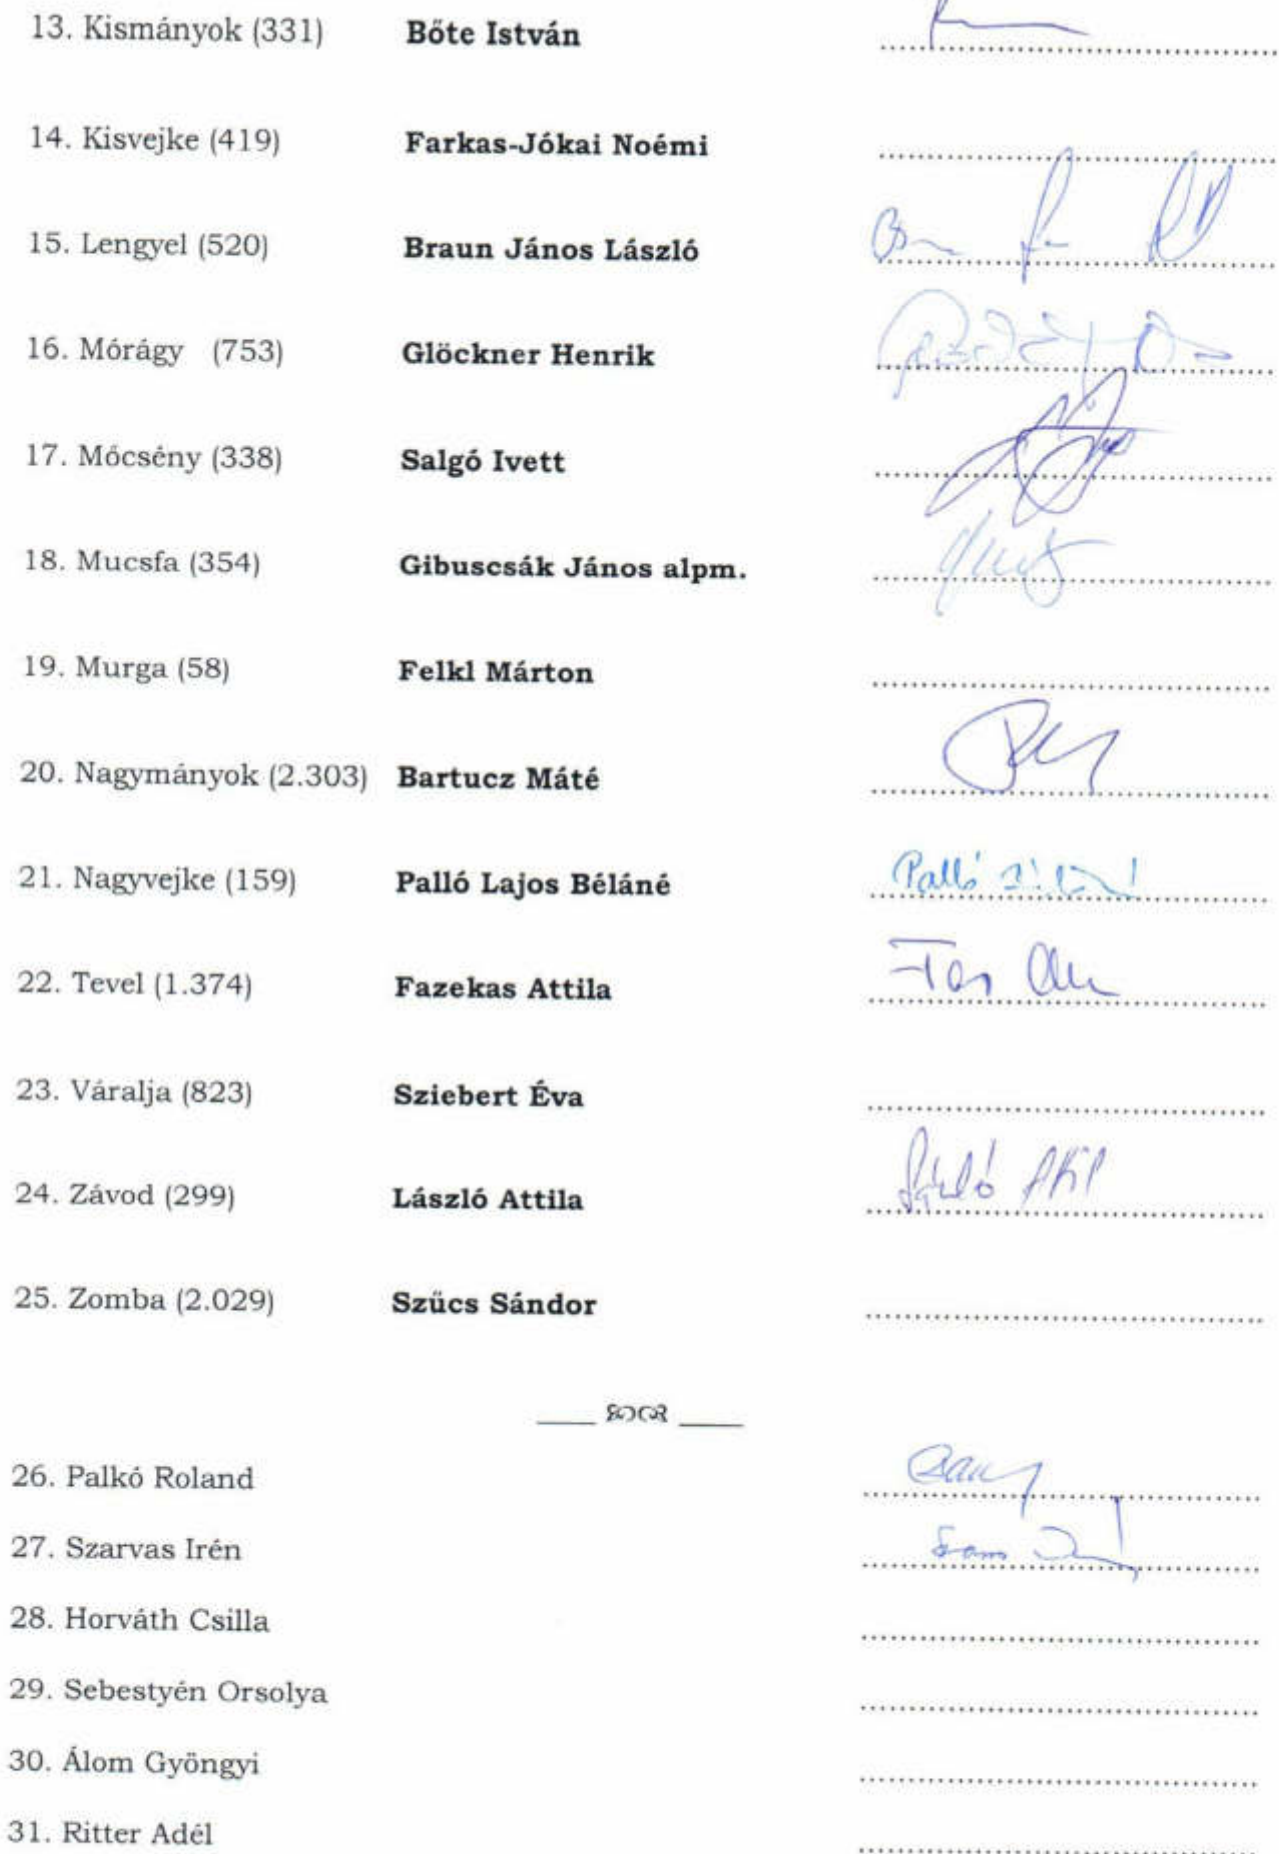 13. Kismányok (331) Bőte István
14. Kisvejke (419) Farkas-Jókai Noémi
15. Lengyel (520) Braun János László
16. Mórágy (753) Glöckner Henrik
17. Mőcsény (338) Salgó Ivett
18. Mucsfa (354) Gibuscsák János alpm.
19. Murga (58) Felkl Márton
20. Nagymányok (2.303) Bartucz Máté
21. Nagyvejke (159) Palló Lajos Béláné Palló
22. Tevel (1.374) Fazekas Attila
23. Váralja (823) Sziebert Éva
24. Závod (299) László Attila
25. Zomba (2.029) Szűcs Sándor
26. Palkó Roland
27. Szarvas Irén
28. Horváth Csilla
29. Sebestyén Orsolya
30. Álom Gyöngyi
31. Ritter Adél